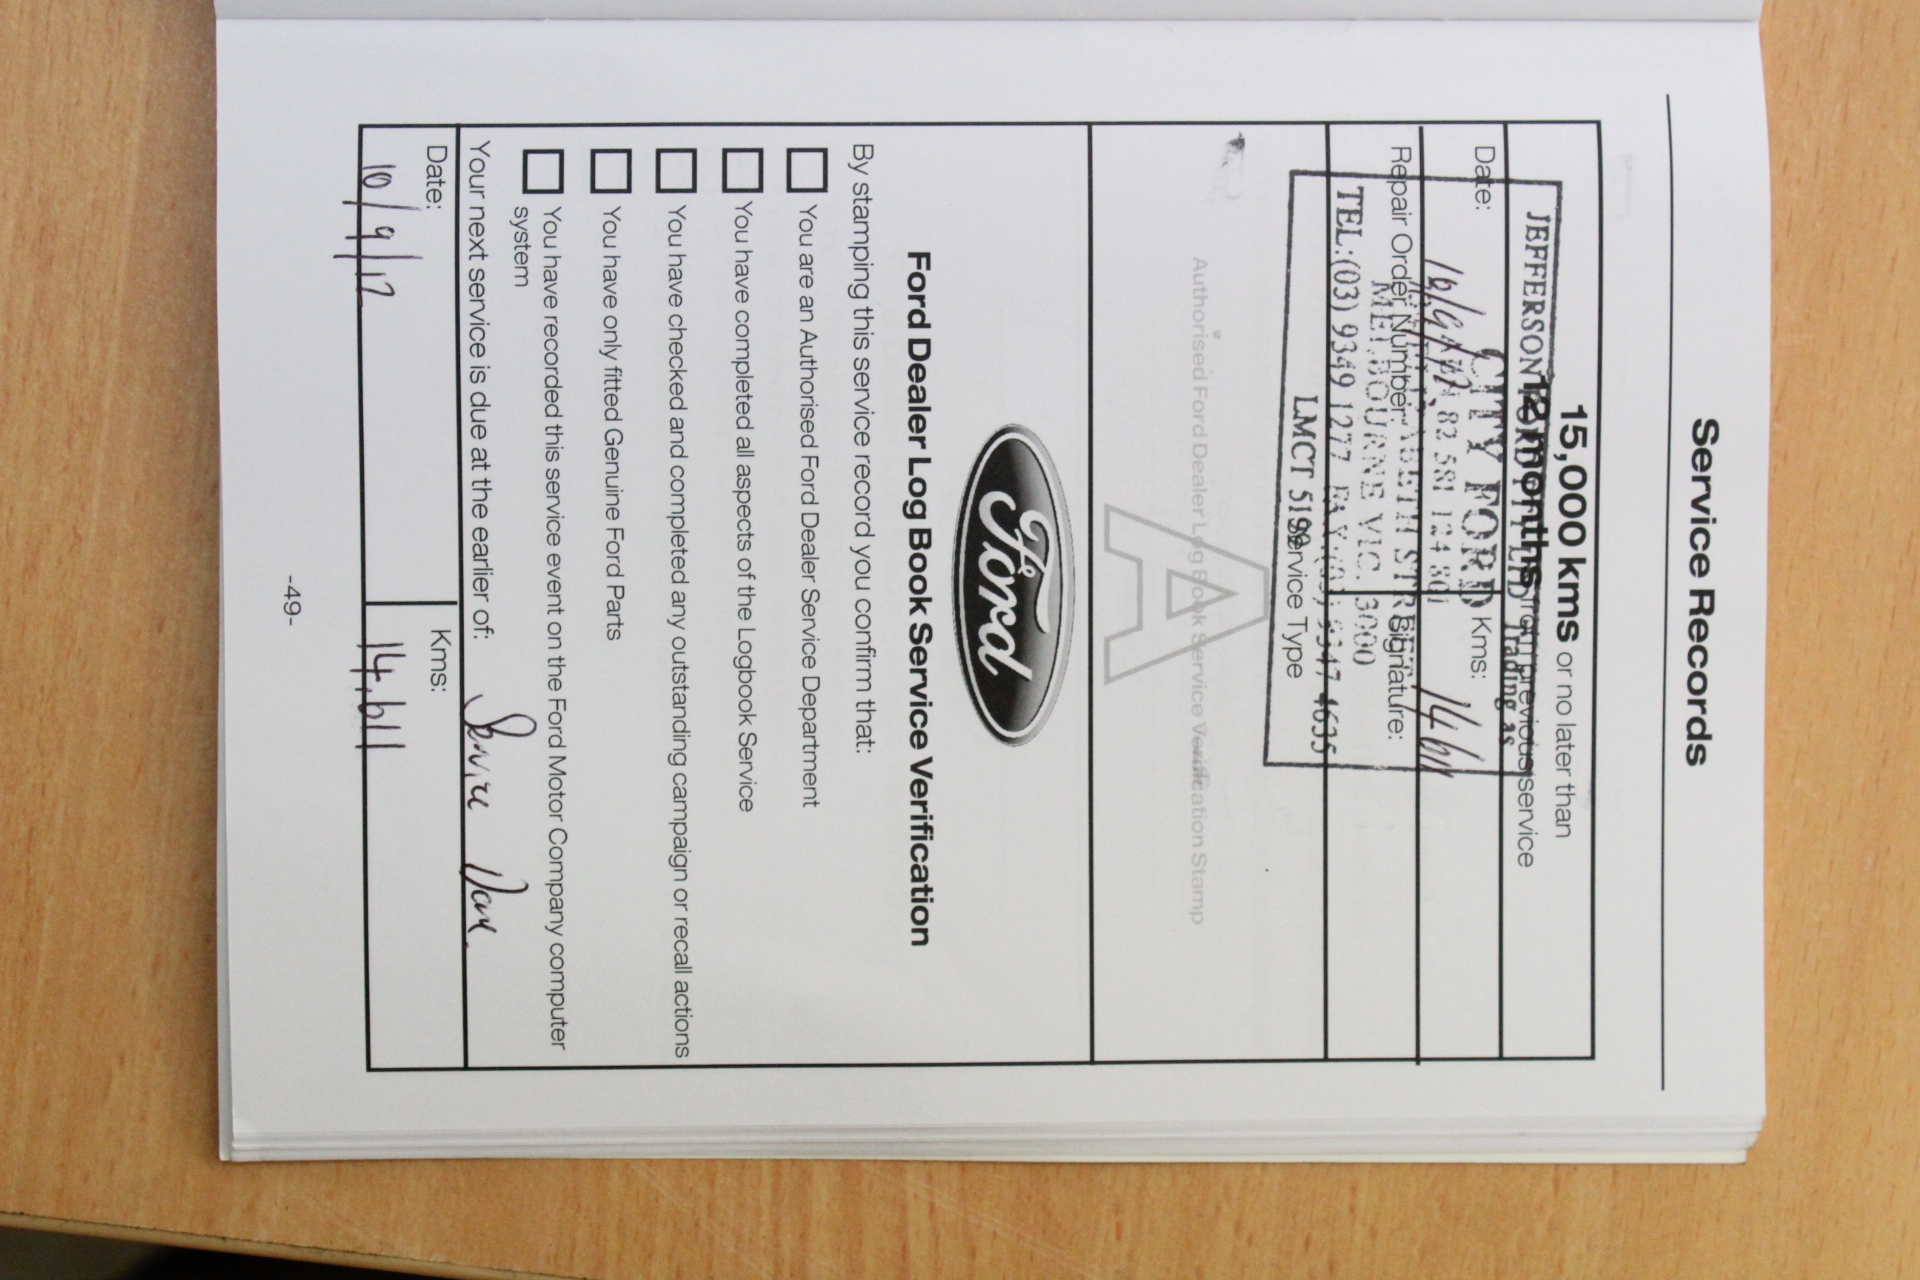 Service Records
15,000 kms or no later than
12 months from previous service
JEFFERSON FORD PTY LTD Trading as
CITY FORD
Date: Kms:
14611
82 581 124 801
Repair Order Number: Signature:
ELIZABETH STREET
MELBOURNE VIC. 3000
TEL:(03) 9349 1277 FAX:(03) 9347 4635
Service Type
LMCT 5199
Authorised Ford Dealer Log Book Service Verification Stamp
A
Ford
Ford Dealer Log Book Service Verification
By stamping this service record you confirm that:
You are an Authorised Ford Dealer Service Department
You have completed all aspects of the Logbook Service
You have checked and completed any outstanding campaign or recall actions
You have only fitted Genuine Ford Parts
You have recorded this service event on the Ford Motor Company computer
system
Your next service is due at the earlier of: Service Done.
Date: Kms:
10/9/17 14,611
-49-